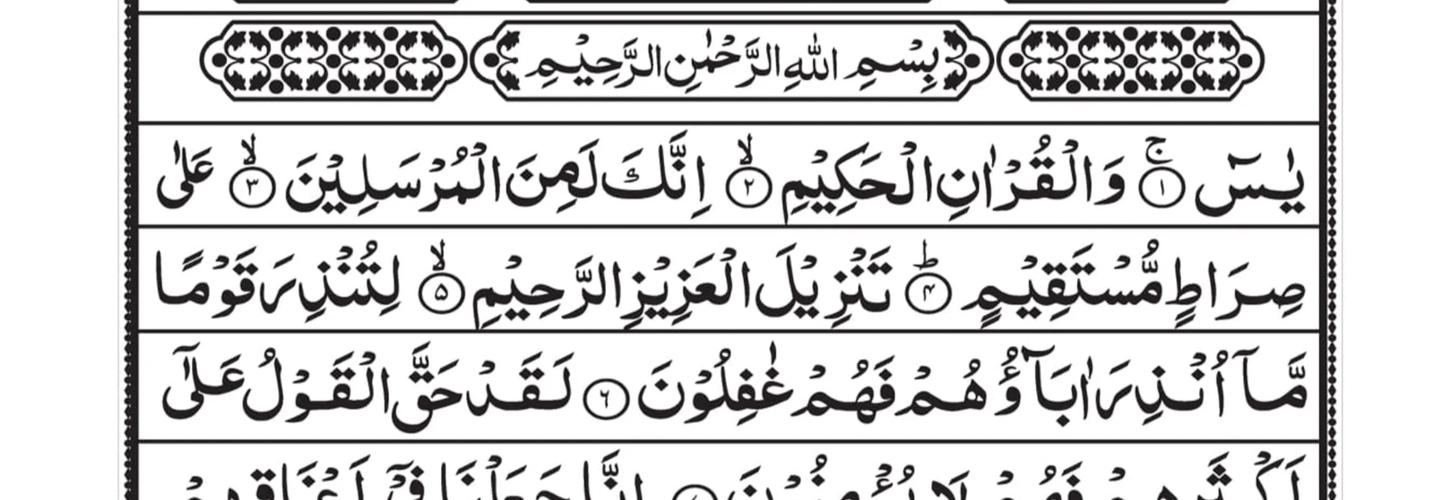 بِسْمِ اللّٰهِ الرَّحْمٰنِ الرَّحِيْمِ
يٰسٓ ۚ‏﴿۱﴾ وَالْقُرْاٰنِ الْحَكِيْمِ ۙ‏﴿۲﴾ اِنَّكَ لَمِنَ الْمُرْسَلِيْنَ ۙ‏﴿۳﴾ عَلٰى
صِرَاطٍ مُّسْتَقِيْمٍ ؕ‏﴿۴﴾ تَنْزِيْلَ الْعَزِيْزِ الرَّحِيْمِ ۙ‏﴿۵﴾ لِتُنْذِرَ قَوْمًا
مَّاۤ اُنْذِرَ اٰبَآؤُهُمْ فَهُمْ غٰفِلُوْنَ ﴿۶﴾ لَقَدْ حَقَّ الْقَوْلُ عَلٰٓى
اَكْثَرِهِمْ فَهُمْ لَا يُؤْمِنُوْنَ ﴿۷﴾ اِنَّا جَعَلْنَا فِىْۤ اَعْنَاقِهِمْ